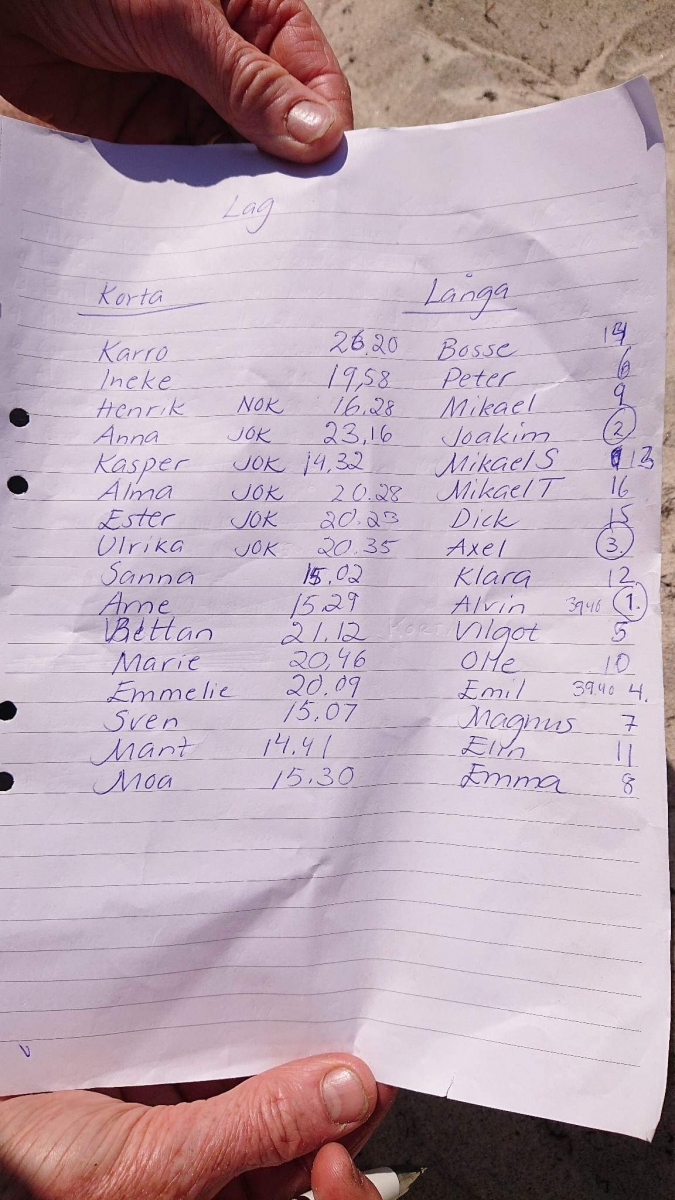 Lag
Korta Långa
Karro 26.20 Bosse 14
Ineke 19,58 Peter 6
Henrik NOK 16,28 Mikael 9
Anna JOK 23,16 Joakim 2
Kasper JOK 14,32 Mikael S 13
Alma JOK 20.28 Mikael T 16
Ester JOK 20.23 Dick 15
Ulrika JOK 20.35 Axel 3.
Sanna 15.02 Klara 12
Arne 15.29 Alvin 39.40 1.
Bettan 21.12 Vilgot 5
Marie 20,46 Olle 10
Emmelie 20.09 Emil 39.40 4.
Sven 15.07 Magnus 7
14.41 Elin 11
Moa 15.30 Emma 8